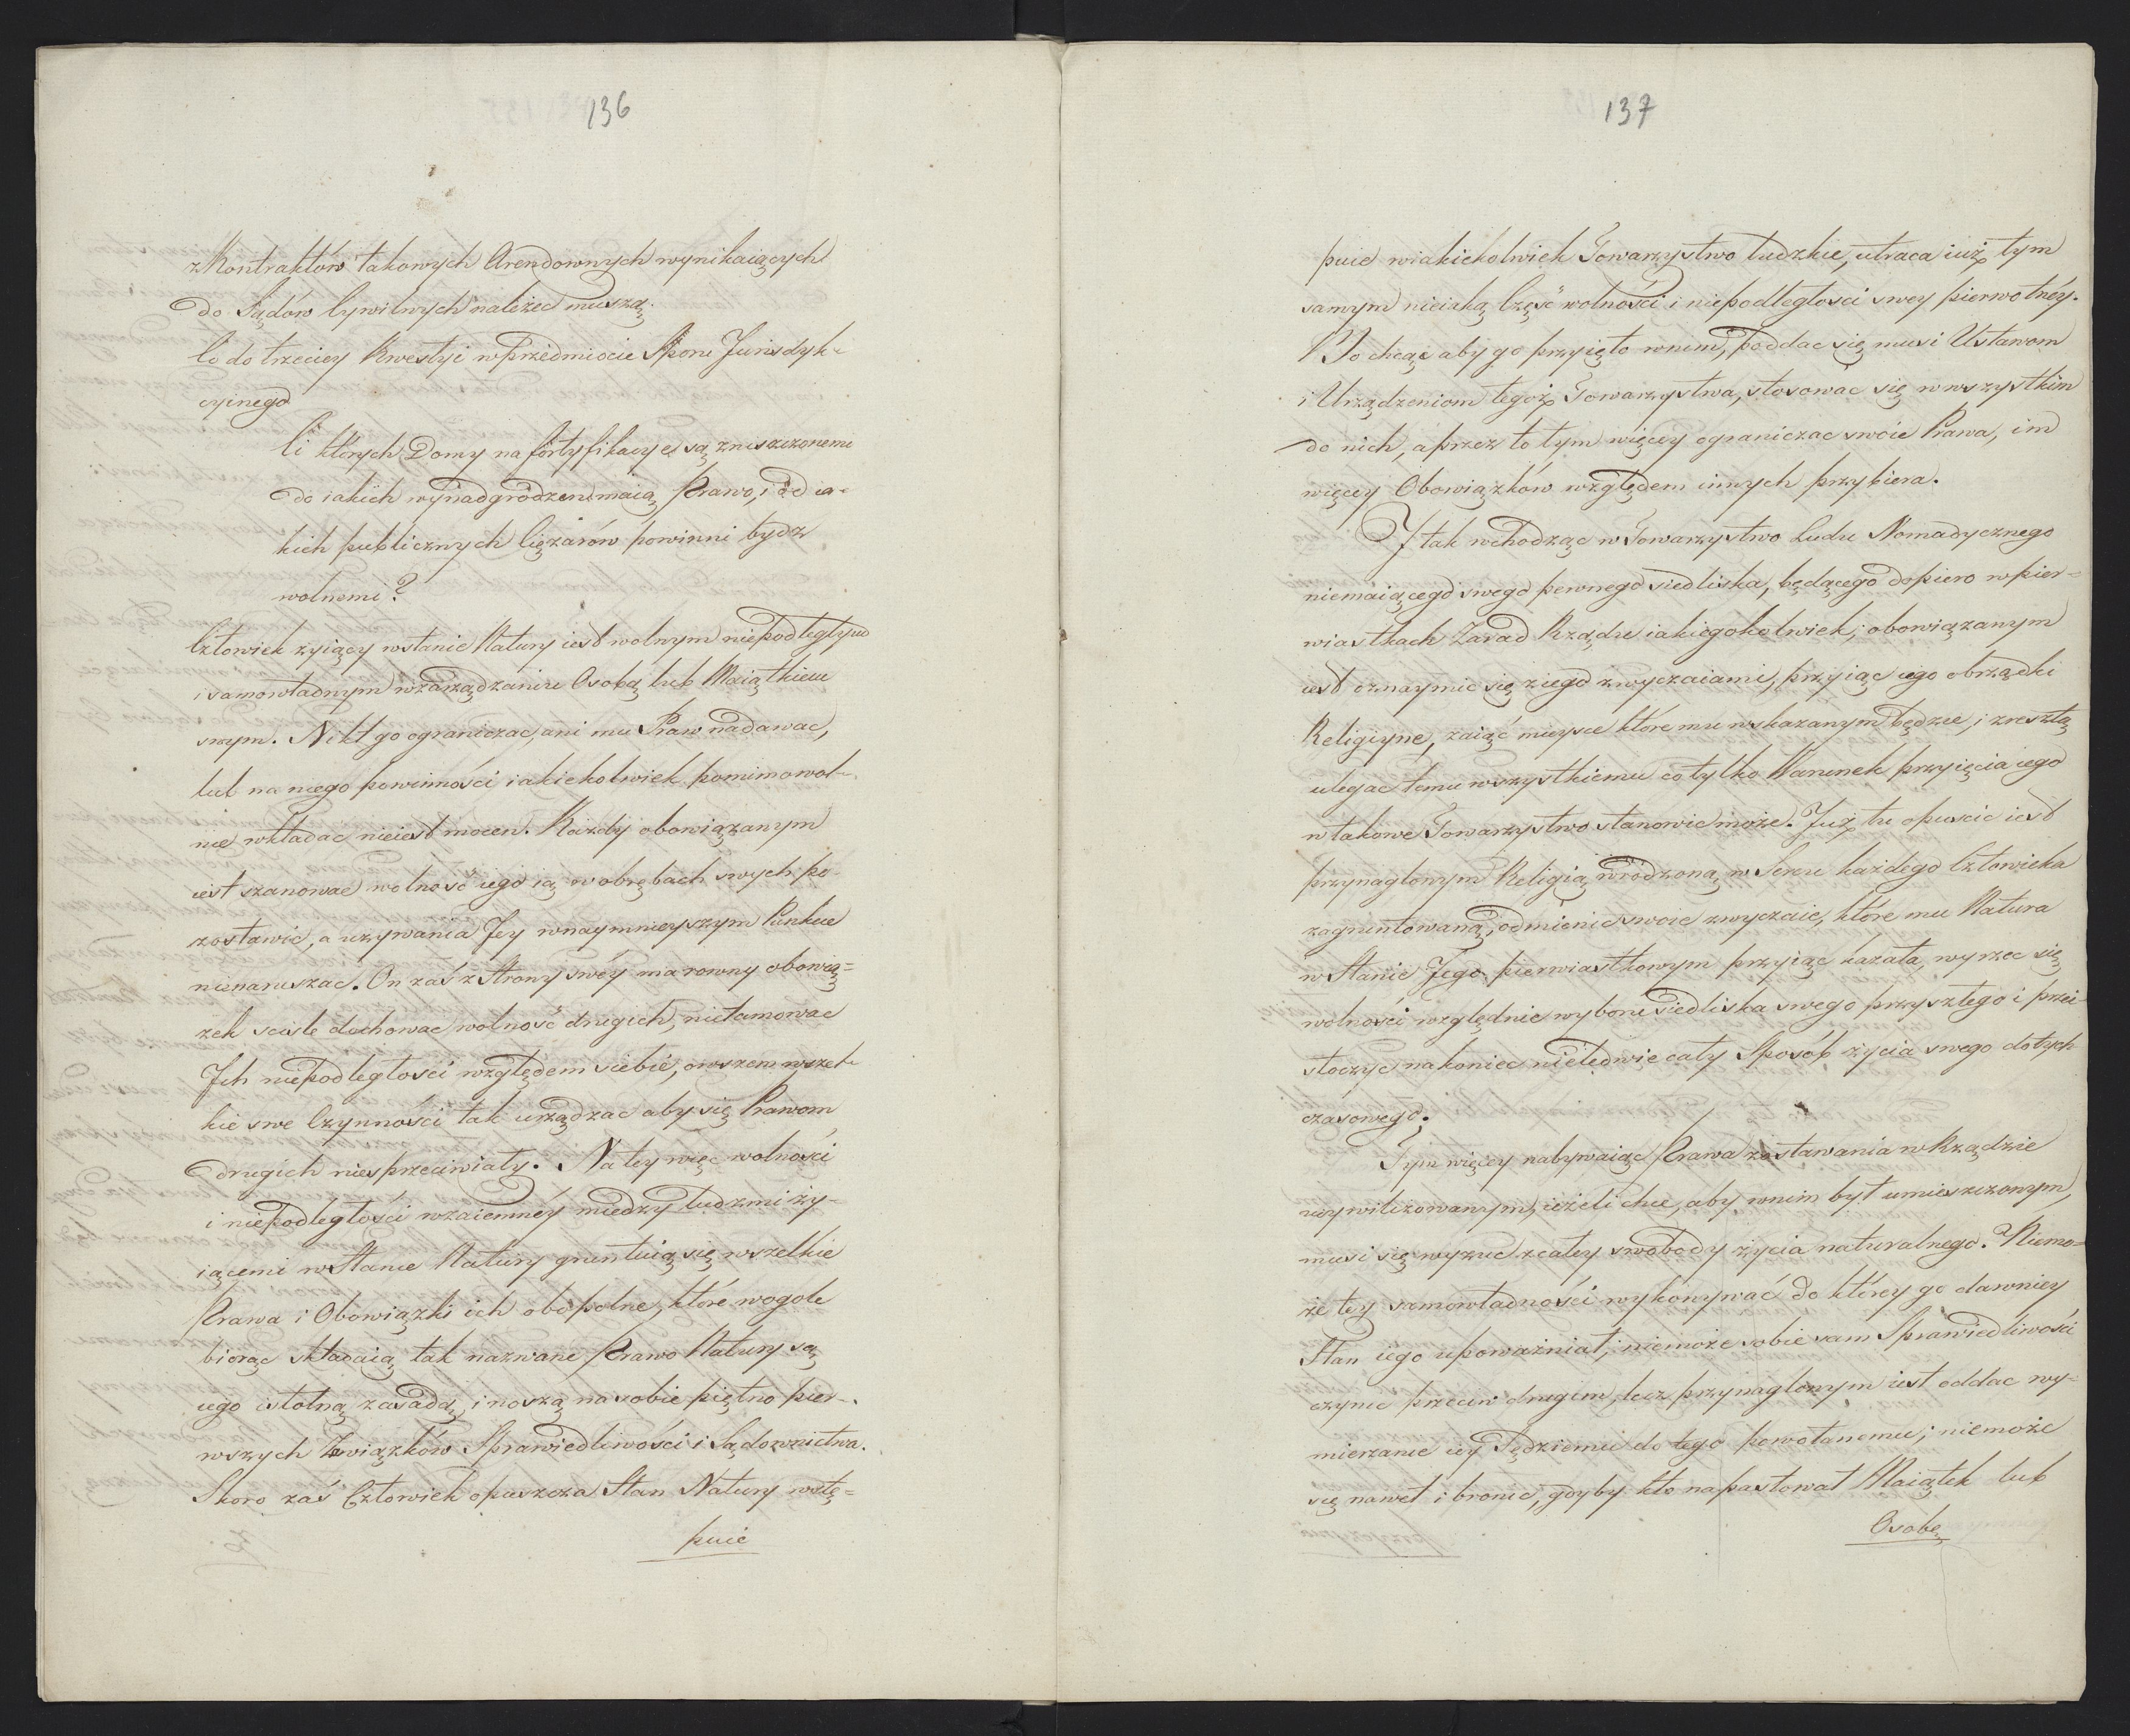 136
z Kontraktów takowych Arendownych wynikaiących
do Sądów Cywilnych należeć muszą.
Co do trzeciey Kwestyi w przedmiocie Sporu Jurisdyk=
cyinego
Ci których Domy na fortyfikacye są zniszczonemi
do iakich wynadgrodzeń maią Prawo, i od ia=
kich publicznych Ciężarów powinni bydz
wolnemi?
Człowiek żyiący w stanie Natury iest wolnym niepodległym
i samowładnym w zarządzaniu Osobą lub Maiątkiem
swym. Nikt go ograniczać, ani mu Praw nadawać,
lub na niego powinności iakiekolwiek pomimowol=
nie wkładać nieiest mocen. Każdy obowiązanym
iest szanować wolność iego ią w obrębach swych po=
zostawić, a używania Jey w naymnieyszym Punkcie
nienaruszać. On zaś z Strony swéy ma rowny obowią=
zek scisle dochować wolność drugich, nietamować
Ich niepodległości względem siebie, owszem wszel=
kie swe Czynności tak urządzać aby się Prawom
drugich niesprzeciwiały. Na tey więc wolności
i niepodległości wzaiemnéy miedzy ludzmi ży=
iącemi w Stanie Natury gruntuią się wszelkie
Prawa i Obowiązki ich obopolne, które wogole
biorąc składaią tak nazwane Prawo Natury są
iego istotną zasadą, i noszą na sobie piętno pier=
wszych Związków Sprawiedliwości i Sądownictwa.
Skoro zaś Człowiek opuszcza Stan Natury wstę=
puie
137
puie w iakiekolwiek Towarzystwo ludzkie, utraca iuż tym
samym nieiaką Część wolności i niepodległosci swey pierwotnéy.
Bo chcąc aby go przyięto w nim, poddać się musi Ustawom
i Urządzeniom tegoż Towarzystwa, stosować się w wszystkim
do nich, a przez to tym więcey ograniczać swoie Prawa, im
więcey Obowiązków względem innych przybiera.
I tak wchodząc w Towarzystwo Ludu Nomadycznego
niemaiącego swego pewnego siedliska, będącego dopiero w pier=
wiastkach Zasad Rządu iakiegokolwiek, obowiązanym
iest oznaymić się z iego zwyczaiami, przyiąć iego obrządki
Religiyne, zaiąć mieysce które mu wskazanym będzie, i zresztą
ulegać temu wszystkiemu co tylko Warunek przyięcia iego
w takowe Towarzystwo stanowić może. Już tu opuścić iest
przynaglonym Religią wrodzoną, w Sercu każdego Człowieka
zagruntowaną, odmienić swoie zwyczaie, które mu Natura
w Stanie Jego pierwiastkowym przyiąć kazała, wyrzec się
wolności względnie wyboru siedliska swego przyszłego i prze=
stoczyć nakoniec nieledwie cały Sposób życia swego dotych
czasowego.
Tym więcey nabywaiąc Prawa zostawania w Rządzie
ucywilizowanym, ieżeli chce, aby w nim był umieszczonym,
musi się wyzuć z całey swobody życia naturalnego. Niemo=
że tey samowładności wykonywać do którey go dawniey
Stan iego upoważniał, niemoże sobie sam Sprawiedliwości
czynić przeciw drugim, lecz przynaglonym iest oddać wy=
mierzanie iey Sędziemu do tego powołanemu; niemoże
się nawet i bronić, gdyby kto napastował Maiątek lub
Osobę